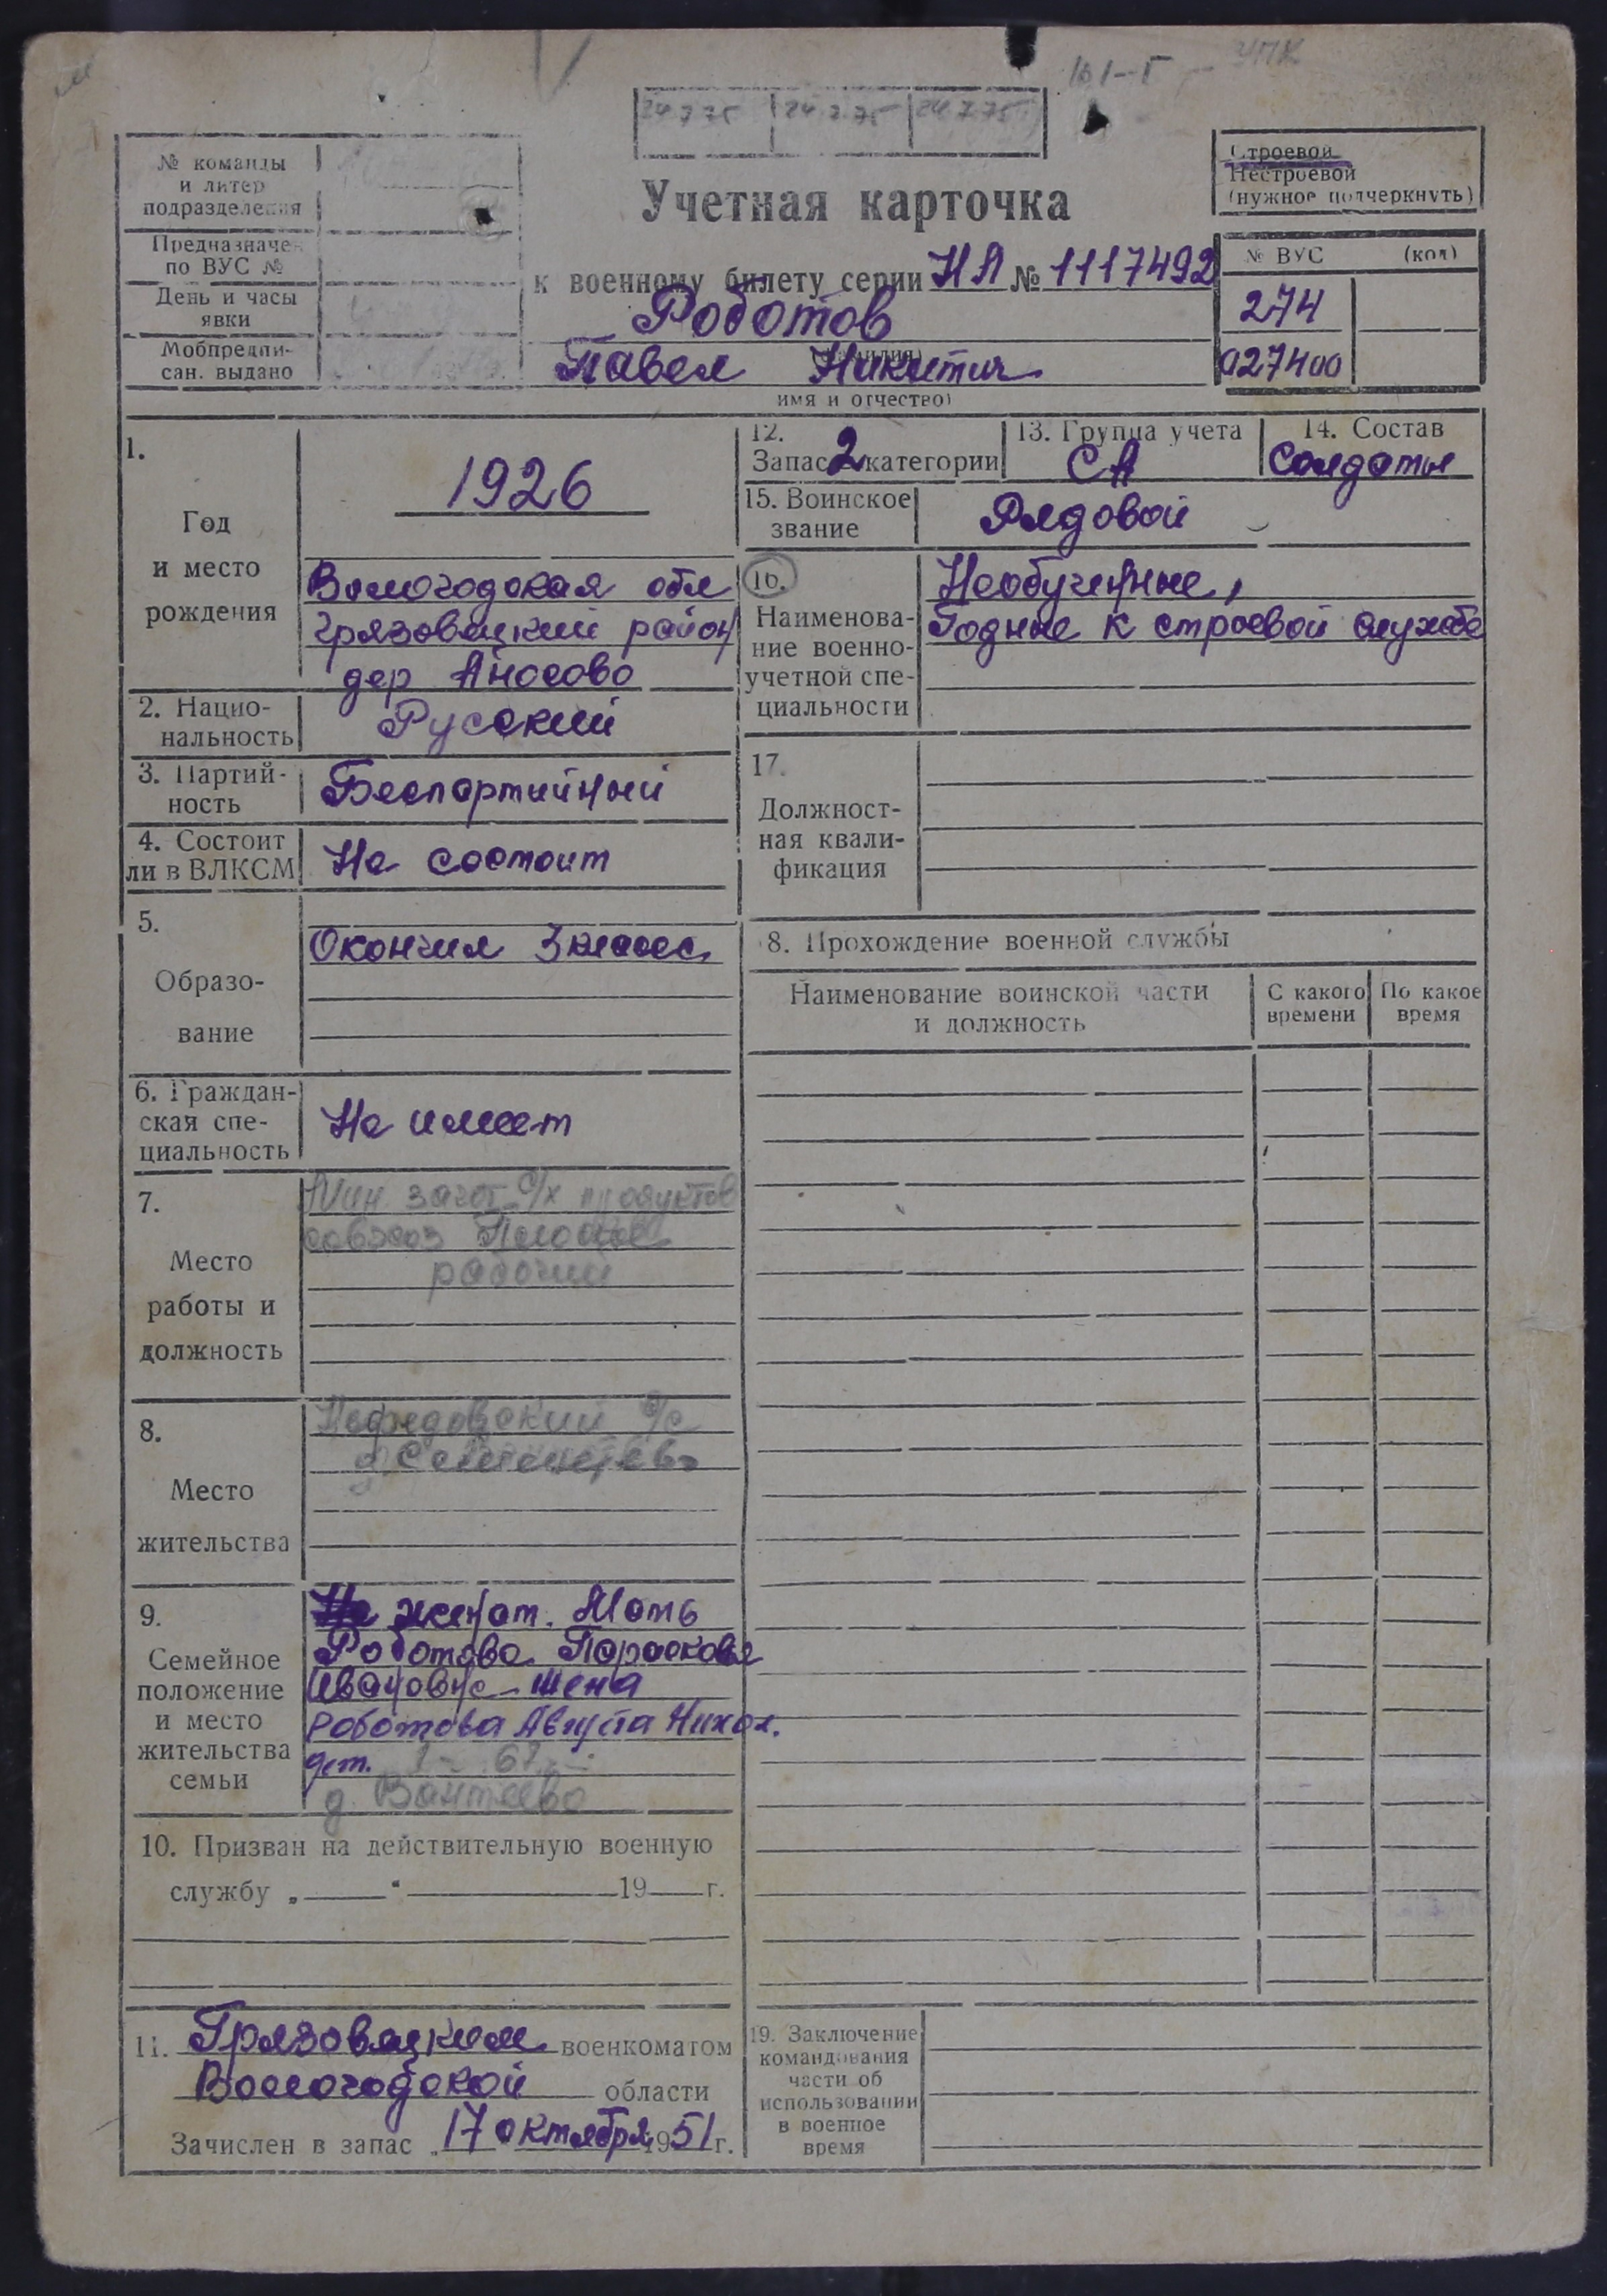 161-Г
24.7.75 24.7.75 24.7.75
№ команды
и литер
подразделения
Предназначен
по ВУС №
День и часы
явки
Мобпредпи-
сан. выдано
Учетная карточка
к военному билету серии НЛ № 1117492
Роботов
(фамилия)
Павел Никитич
имя и отчество)
Строевой
Нестроевой
(нужное подчеркнуть)
№ ВУС (код)
274
027400
1.
Год
и место
рождения
1926
Вологодская обл
Грязовецкий район
дер Аносово
2. Нацио-
нальность
Русский
3. Партий-
ность
Беспартийный
4. Состоит
ли в ВЛКСМ
Не состоит
5.
Образо-
вание
Окончил 3 класса
6. Граждан-
ская спе-
циальность
Не имеет
7.
Место
работы и
должность
Мин. загот. с/х продуктов
совхоз
рабочий
8.
Место
жительства
Нефедовский с/с
9.
Семейное
положение
и место
жительства
семьи
Не женат. Мать
Роботова Парасковья
Ивановна - жена
Роботова Августа Никол.
дет. 1-
д. Вантеево
10. Призван на действительную военную
службу „ “ 19 г.
11. Грязовецким военкоматом
Вологодской области
Зачислен в запас „ 17 октября 1951 г.
12.
Запас 2 категории
13. Группа учета
СА
14. Состав
Солдаты
15. Воинское
звание
Рядовой
16.
Наименова-
ние военно-
учетной спе-
циальности
Необученные,
Годные к строевой службе
17.
Должност-
ная квали-
фикация
8. Прохождение военной службы
Наименование воинской части
и должность
С какого
времени
По какое
время
19. Заключение
командования
части об
использовании
в военное
время